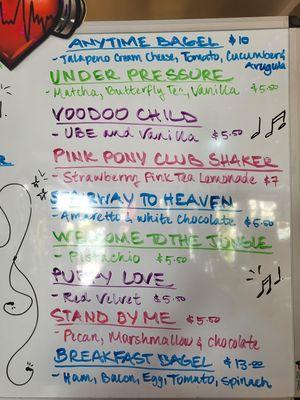 ANYTIME BAGEL $10
- Jalapeno Cream Cheese, Tomato, Cucumber &
Arugula
UNDER PRESSURE
- Matcha, Butterfly Tea, Vanilla $5.50
VOODOO CHILD
- UBE and Vanilla $5.50
PINK PONY CLUB SHAKER
- Strawberry Pink Tea Lemonade $7
STAIRWAY TO HEAVEN
- Amaretto & White Chocolate $5.50
WELCOME TO THE JUNGLE
- Pistachio $5.50
PUPPY LOVE
- Red Velvet $5.50
STAND BY ME $5.50
- Pecan, Marshmallow & Chocolate
BREAKFAST BAGEL $13.00
- Ham, Bacon, Egg, Tomato, Spinach